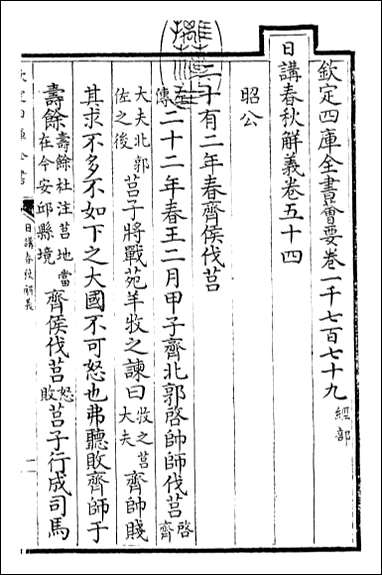 欽定四庫全書薈要卷一千七百七十九經部
日講春秋解義卷五十四
昭公
二十有二年春齊侯伐莒
傳二十二年春王二月甲子齊北郭啓帥師伐莒啓齊
大夫北郭佐之後莒子將戰苑羊牧之諫曰牧之莒大夫齊帥賤
其求不多不如下之大國不可怒也弗聽敗齊師于
壽餘壽餘杜注莒地當在今安邱縣境齊侯伐莒怒敗莒子行成司馬
日講春秋解義